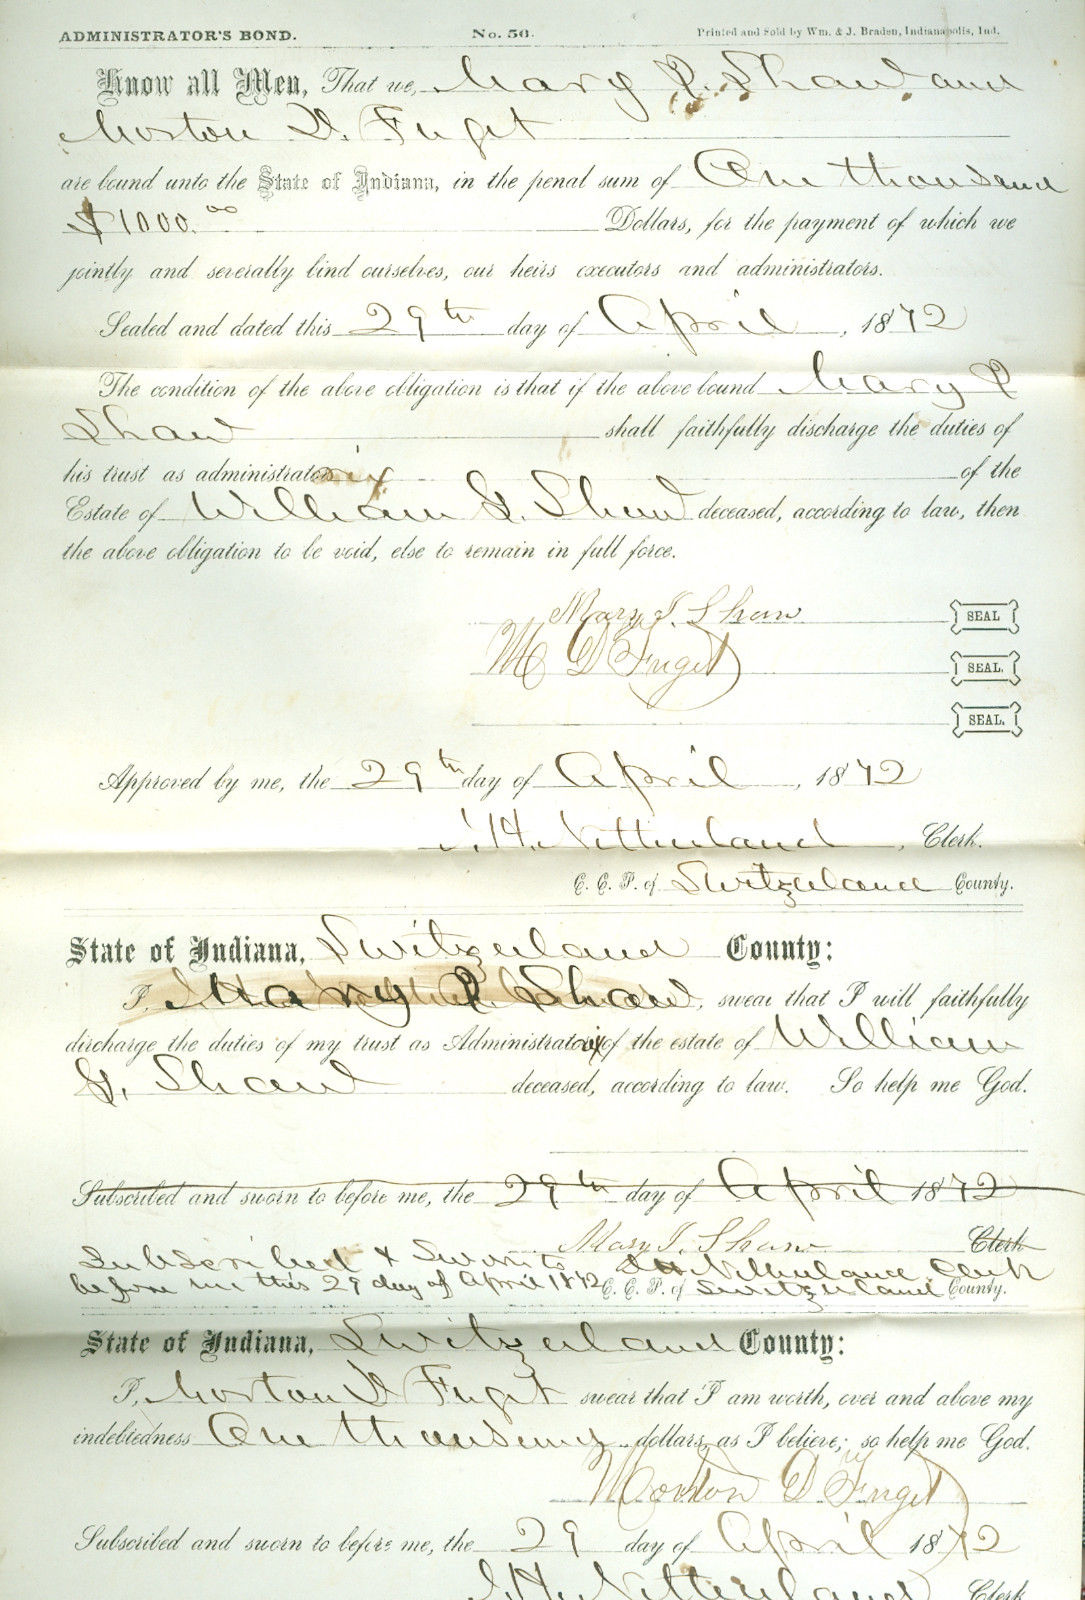 ADMINISTRATOR'S BOND. No. 56. Printed and Sold by Wm. & J. Braden, Indianapolis, Ind.
Know all Men, That we, Mary P. Shaw and
Morston D. Fuget
are bound unto the State of Indiana, in the penal sum of One thousand
$1000.00 Dollars, for the payment of which we
jointly and severally bind ourselves, our heirs executors and administrators.
Sealed and dated this 29th day of April, 1872
The condition of the above obligation is that if the above bound Mary P
Shaw shall faithfully discharge the duties of
his trust as administratorix of the
Estate of William G. Shaw deceased, according to law, then
the above obligation to be void, else to remain in full force.
Mary J. Shaw SEAL
M D Fuget SEAL.
SEAL.
Approved by me, the 29th day of April, 1872
J. H. Netherland, Clerk.
C. C. P. of Switzerland County.
State of Indiana, Switzerland County:
I, Mary P Shaw, swear that I will faithfully
discharge the duties of my trust as Administratorix of the estate of William
G. Shaw deceased, according to law. So help me God.
Subscribed and sworn to before me, the 29th day of April 1872
Mary J. Shaw Clerk
Subscribed & Sworn to J H Netherland Clerk
before me this 29 day of April 1872 C. C. P. of Switzerland County.
State of Indiana, Switzerland County:
I, Morston D Fuget swear that I am worth, over and above my
indebtedness One thousand dollars, as I believe; so help me God.
Morston D Fuget
Subscribed and sworn to before me, the 29 day of April 1872
J. H. Netherland Clerk